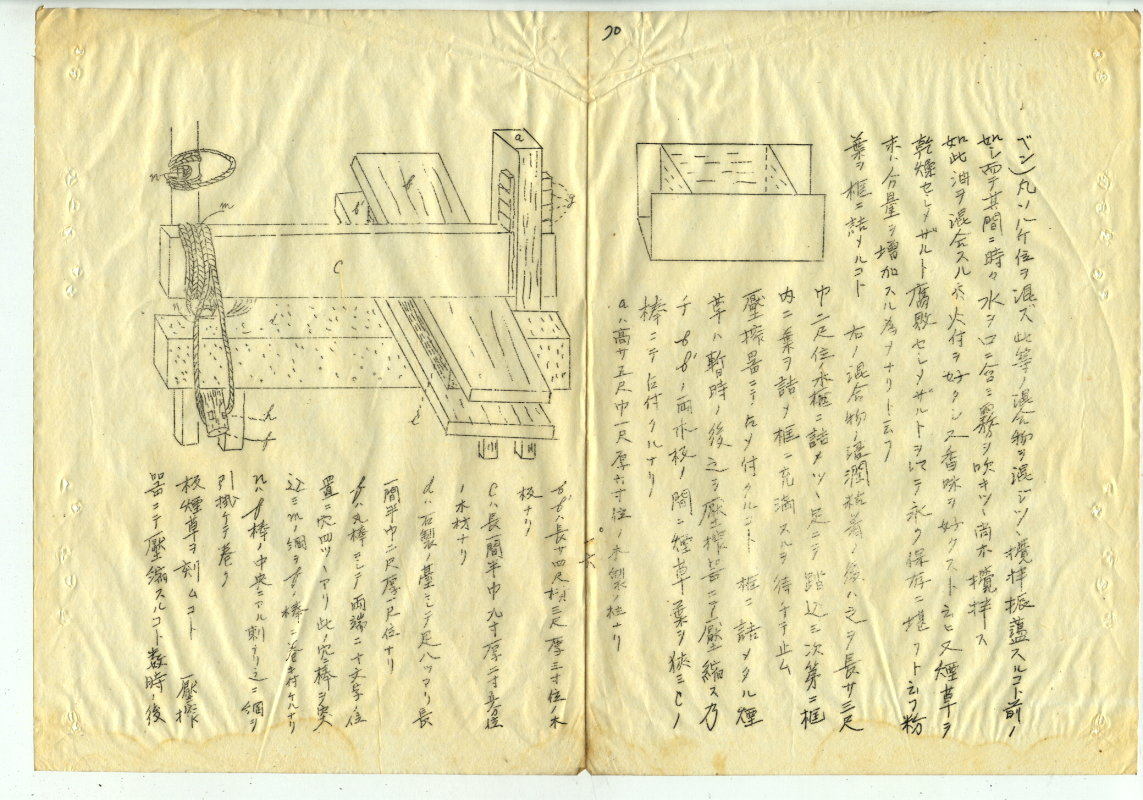 30
ベン)丸ソルケ位ヲ混ズ此等ノ混合物ヲ混ジツヽ攪拌振蘯スルコト前ノ
如シ而テ其間ニ時々水ヲ口ニ含ミ霧ヲ吹キツヽ尚本攪拌ス
如此油ヲ混合スルハ火付ヲ好クシ又香味ヲ好クスト云ヒ又煙草ヲ
乾燥セシメザルト腐敗セシメザルトヲ以テ永ク保存ニ堪フト云フ粉
末ハ分量ヲ増加スル為メナリト云フ
葉ヲ框ニ詰メルコト 右ノ混合物ノ湿潤 ノ後ハ之ヲ長サ三尺
巾二尺位ノ木框ニ詰メツヽ足ニテ踏込ミ次第ニ框
内ニ葉ヲ詰メ框ニ充満スルヲ待チテ止ム
壓搾器ニテ占メ付クルコト 框ニ詰メタル煙
草ハ暫時ノ後之ヲ壓搾器ニテ壓縮ス乃
チbb'ノ両木板ノ間ニ煙草葉ヲ狭ミCノ
棒ニテ占付クルナリ
aハ高サ五尺巾一尺厚六寸位ノ木製ノ柱ナリ
a
b
b'
g
C
n
m
d
e
h
f
bb'ハ長サ四尺横三尺厚三寸位ノ木
板ナリ
Cハ長一間半巾九寸厚二寸五分位
ノ木材ナリ
dハ石製ノ臺ニシテ足八ツアリ長
一間半巾二尺厚一尺位ナリ
fハ丸棒ニシテ両端ニ十文字ノ位
置ニ穴四ツヽアリ此ノ穴ニ棒ヲ突
込ミmノ綱ヲfノ棒ニ巻キ付ケルナリ
nハf棒ノ中央ニアル刺ナリ之ニ綱ヲ
引掛ケテ巻ク
板煙草ヲ刻ムコト 壓搾
器ニテ壓縮スルコト数時ノ後